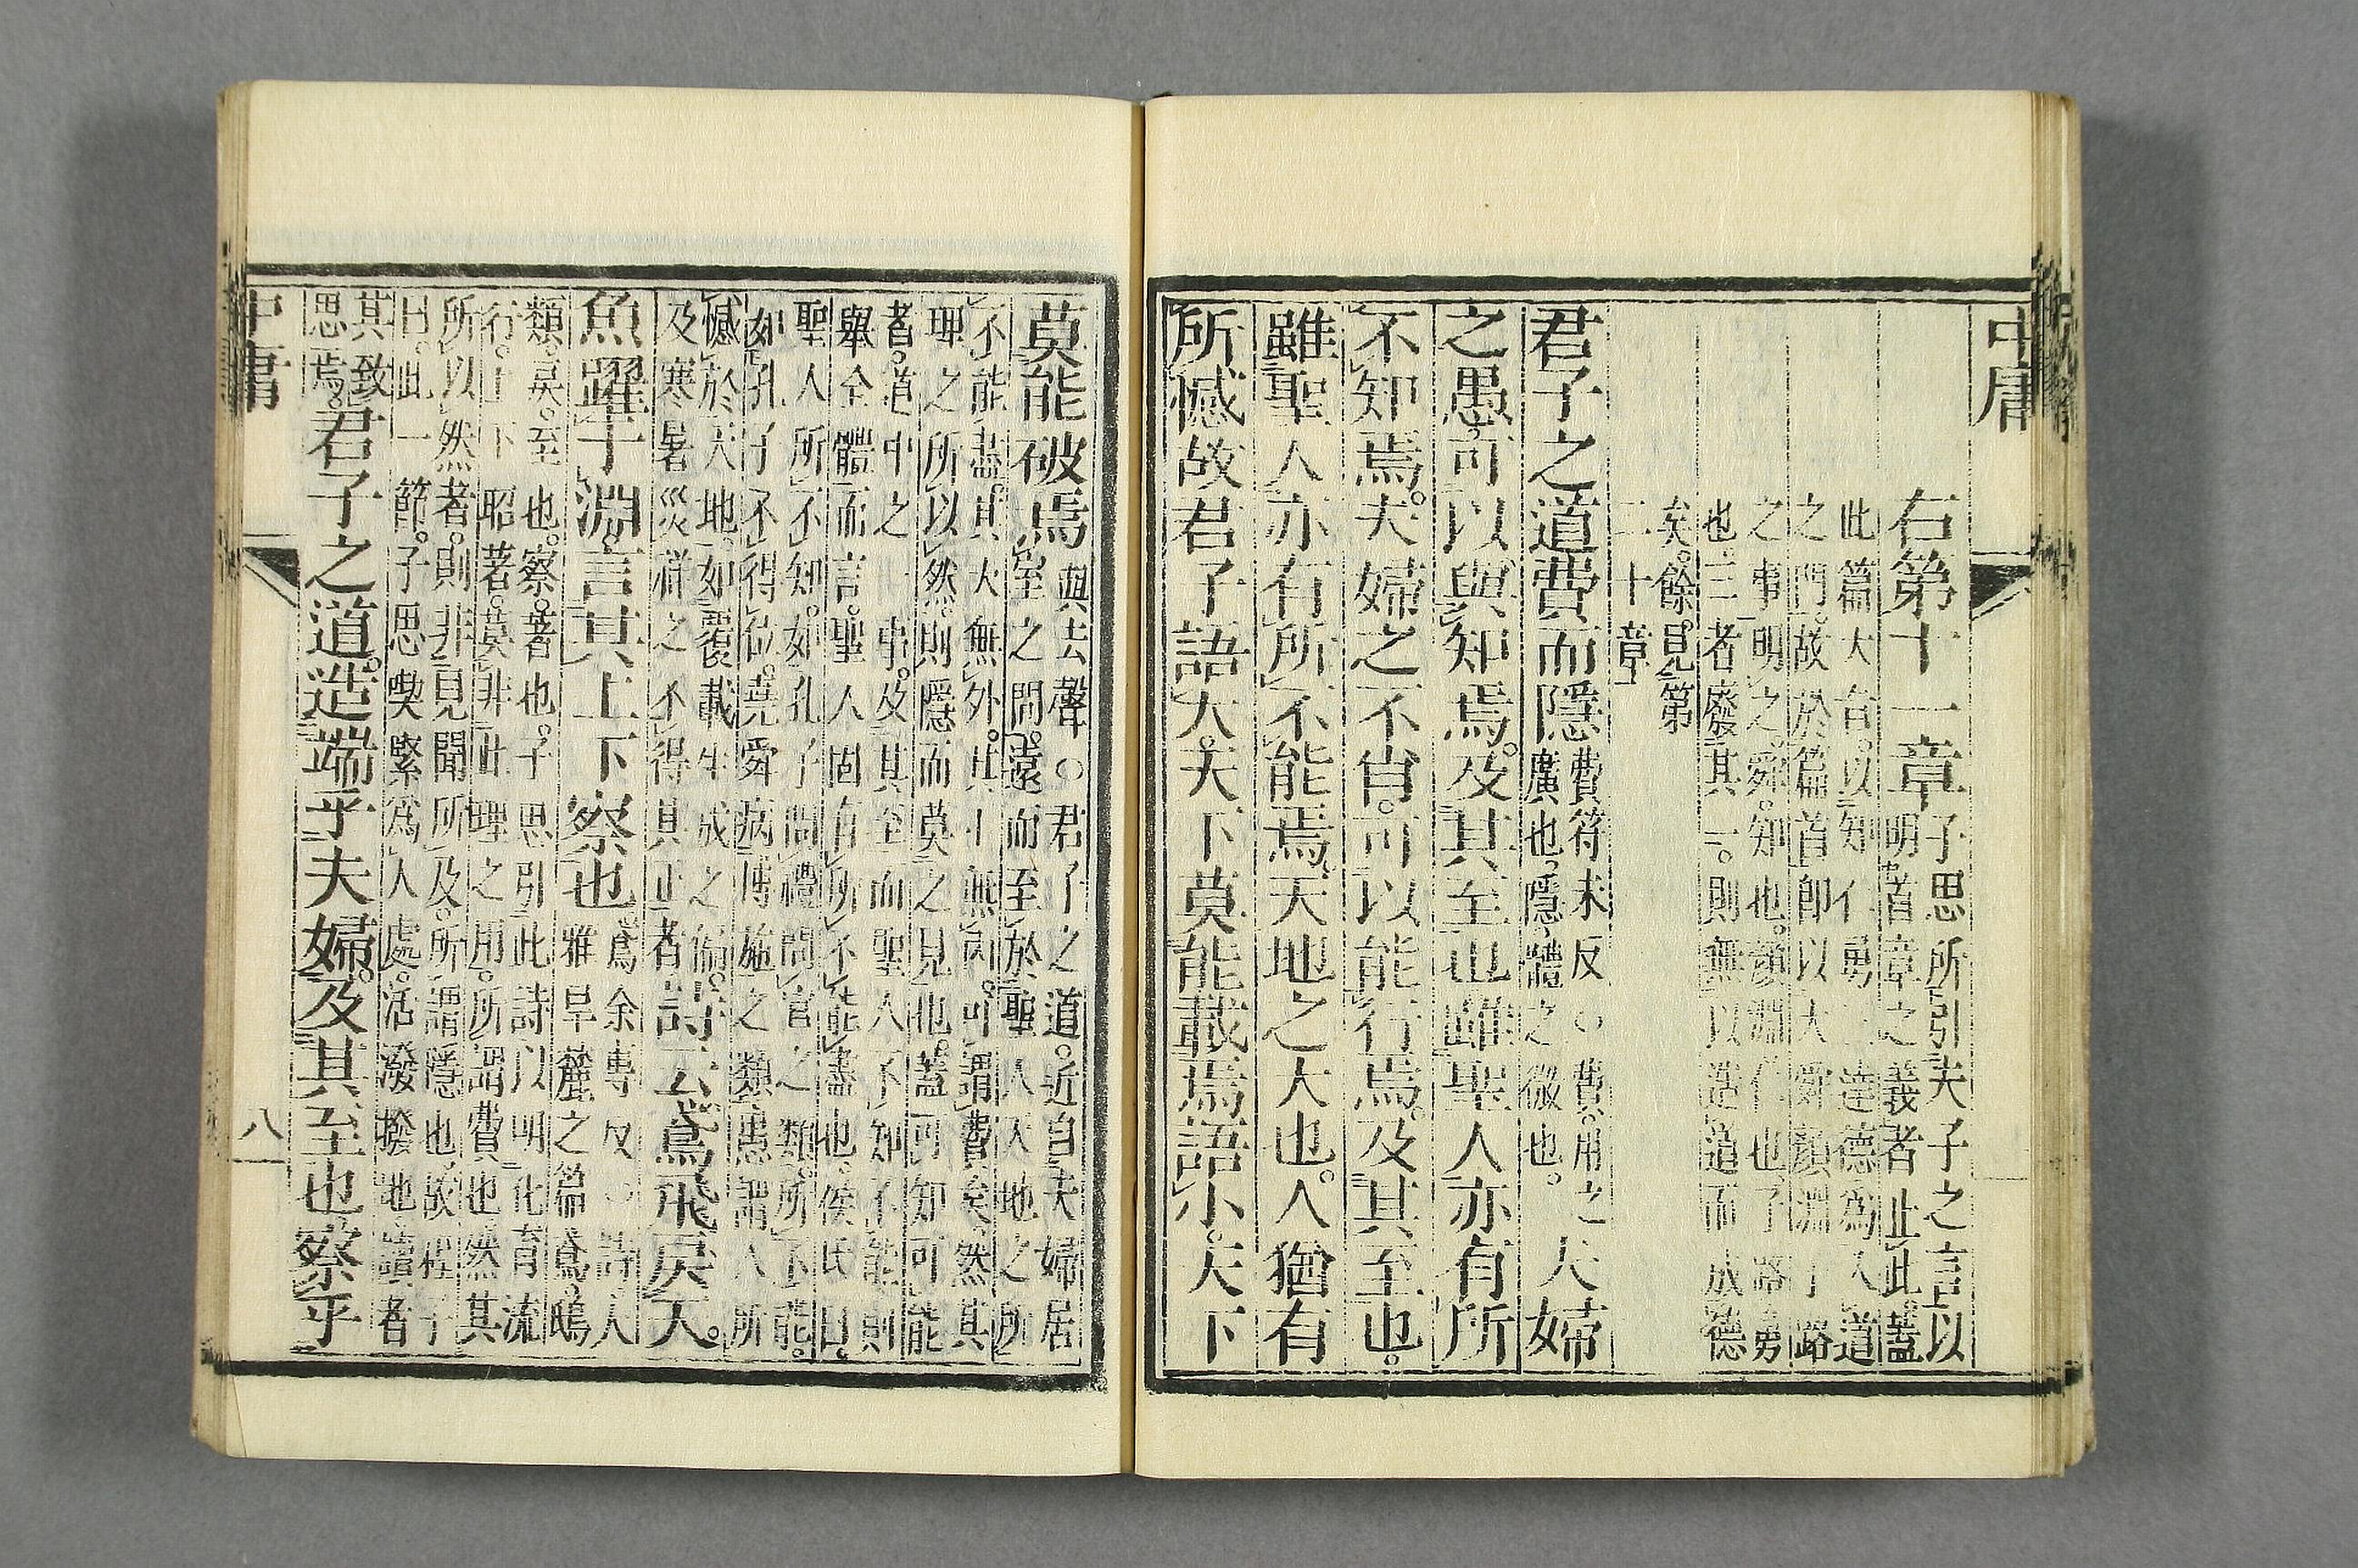 中庸
右第十一章
子思所引夫子之言以
明首章之義者止此。蓋
此篇大旨。以知仁勇三達德爲入道
之門。故於篇首即以大舜顏淵子路
之事明之。舜。知也。顏淵。仁也。子路。勇
也。三者廢其一。則無以造道而成德
矣。餘見第
二十章
君子之道費而隱
費符未反○費。用之
廣也。隱。體之微也。
夫婦
之愚。可以與知焉。及其至也雖聖人亦有所
不知焉。夫婦之不肖。可以能行焉。及其至也。
雖聖人亦有所不能焉。天地之大也。人猶有
所憾故君子語大。天下莫能載焉語小。天下
莫能破焉
與去聲○君子之道。近自夫婦居
室之間。遠而至於聖人天地之所
不能盡。其大無外。其小無內。可謂費矣。然其
理之所以然。則隱而莫之見也。蓋可知可能
者。道中之一事。及其至而聖人不知不能。則
舉全體而言。聖人固有所不能盡也。侯氏曰。
聖人所不知。如孔子問禮問官之類。所不能。
如孔子不得位。堯舜病博施之類。愚謂人所
憾於天地。如覆載生成之偏。
及寒暑災祥之不得其正者
詩云鳶飛戾天。
魚躍于淵。言其上下察也。
鳶余專反○詩大
雅旱麓之篇。鳶。鴟
類。戾。至也。察。著也。子思引此詩以明化育流
行。上下昭著。莫非此理之用。所謂費也。然其
所以然者。則非見聞所及。所謂隱也。故程子
曰。此一節。子思喫緊爲人處。活潑潑地。讀者
其致
思焉。
君子之道。造端乎夫婦。及其至也察乎
中庸
八